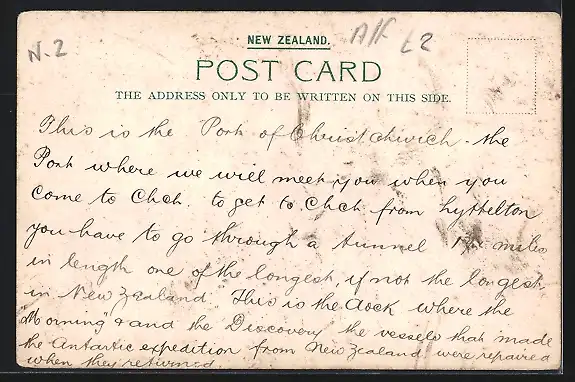 N.2
£2
NEW ZEALAND.
POST CARD
THE ADDRESS ONLY TO BE WRITTEN ON THIS SIDE.
This is the Port of Christchurch - the
Port where we will meet you when you
come to Chch. to get to Chch from Lyttelton
you have to go through a tunnel miles
in length one of the longest, if not the longest
in New Zealand. This is the dock where the
"Morning" & and the Discovery the vessels that made
the Antartic expedition from New Zealand were repaired
when they returned.